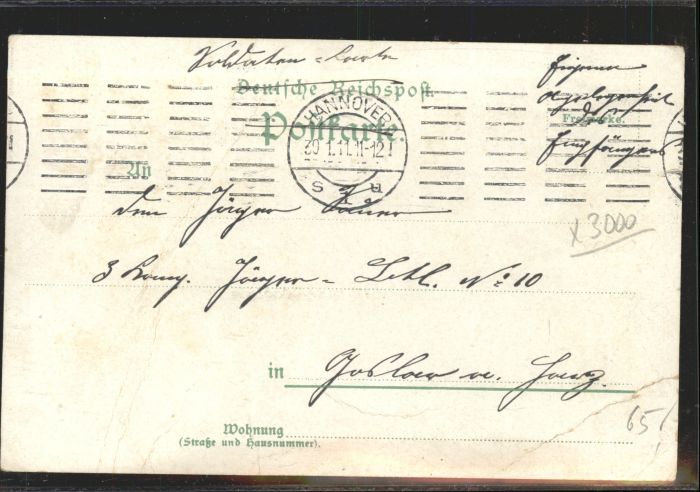 Soldaten = Karte
Eigene
Angelegenheit
d
Freimarke.
Empfängers
Deutsche Reichspost.
Postkarte.
HANNOVER
30.1.11.11-12
s u
An
dem Jäger
3 Komp. Jäger = Batl. No: 10
x 3000
in Goslar a. Harz.
65/
Wohnung
(Straße und Hausnummer).